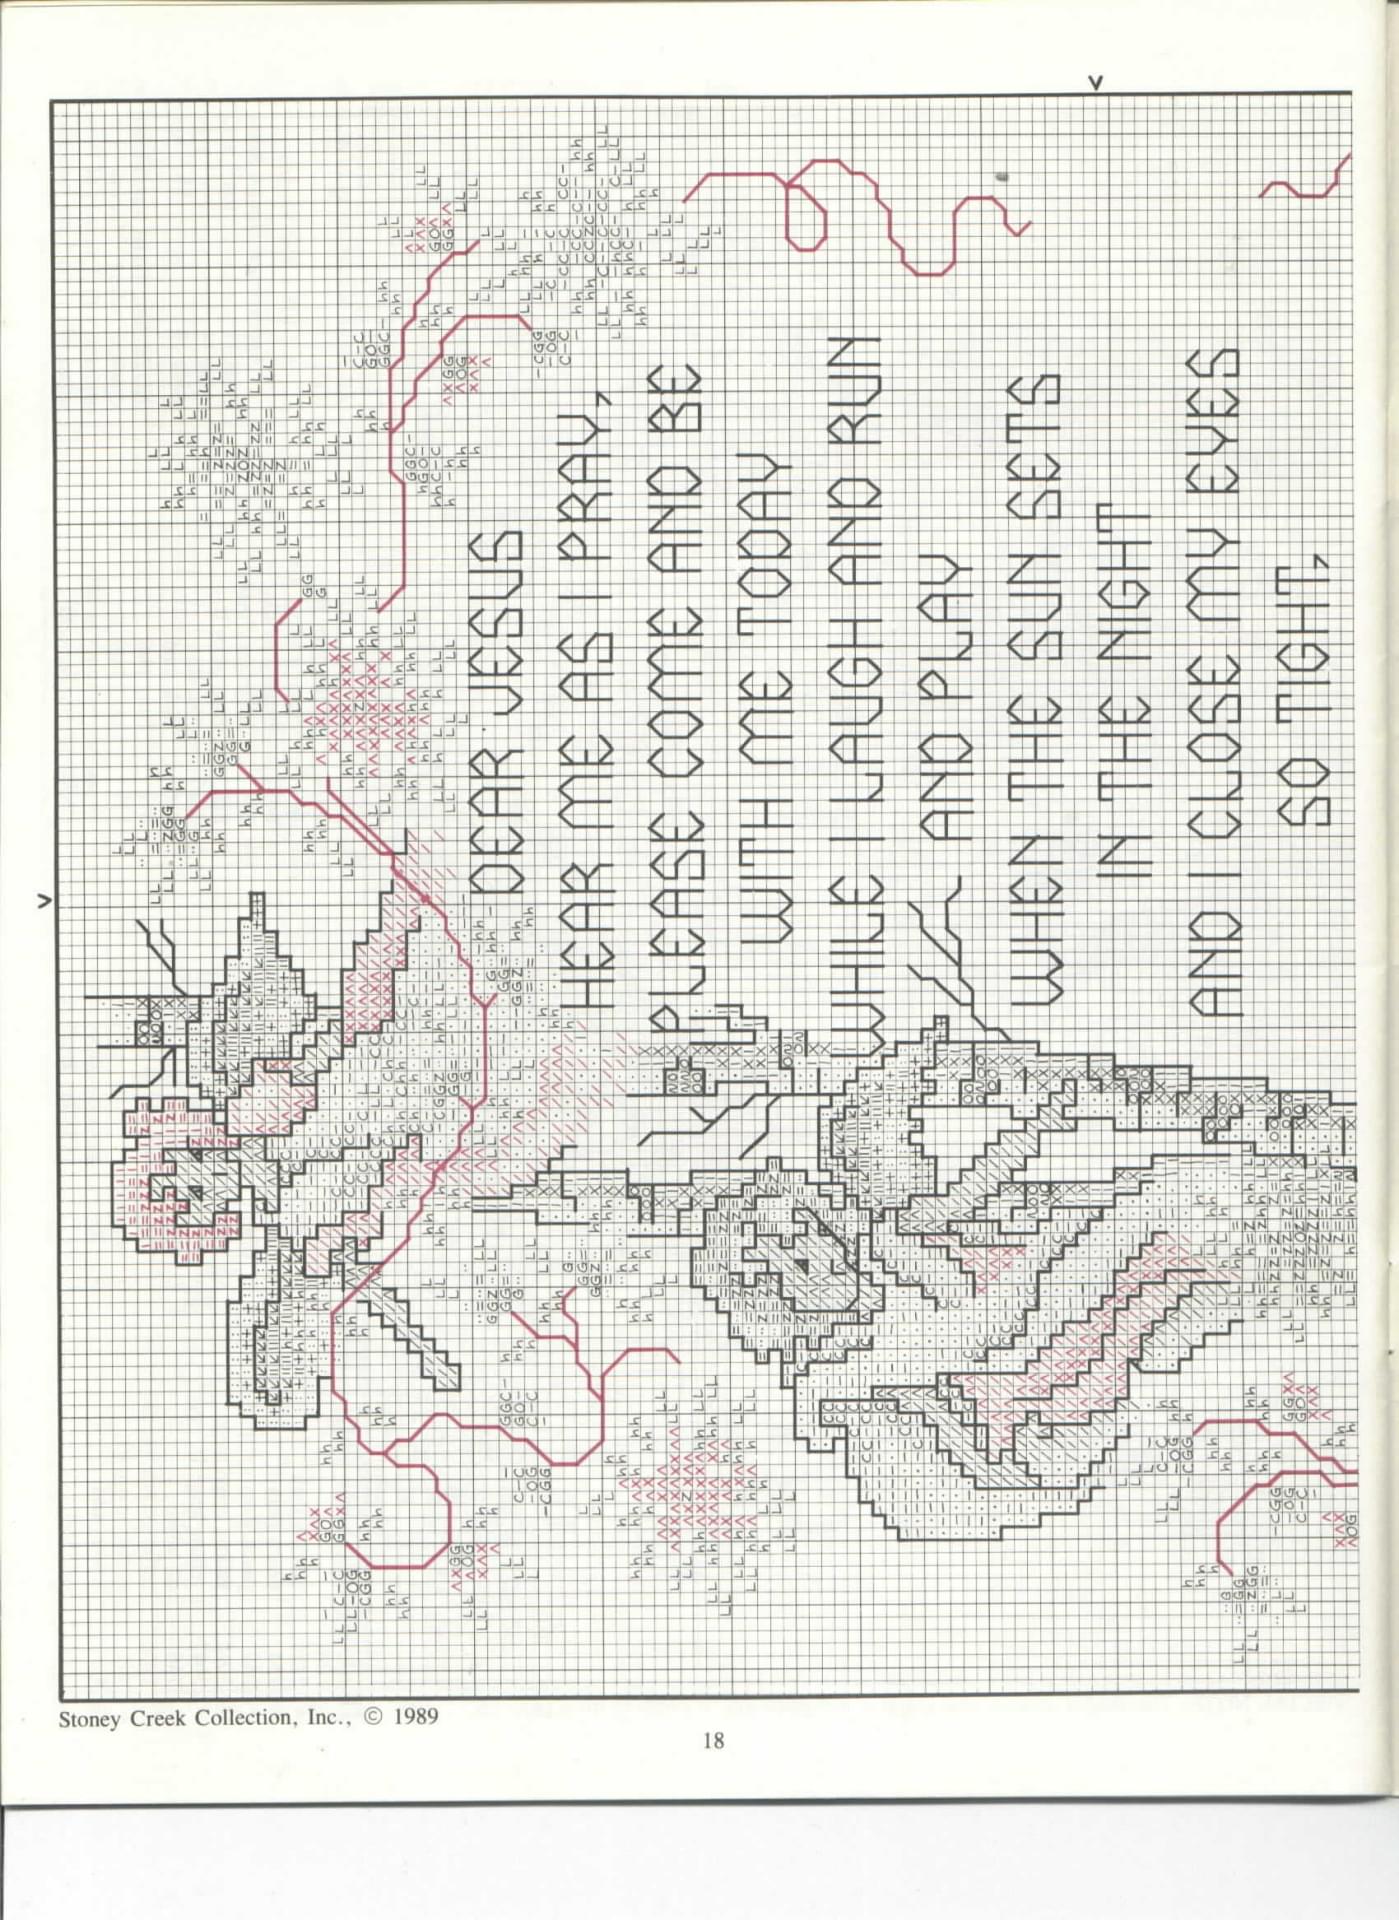 DEAR JESUS
HEAR ME AS I PRAY,
PLEASE COME AND BE
WITH ME TODAY
WHILE I LAUGH AND RUN
AND PLAY
WHEN THE SUN SETS
IN THE NIGHT
AND I CLOSE MY EYES
SO TIGHT,
Stoney Creek Collection, Inc., © 1989
18